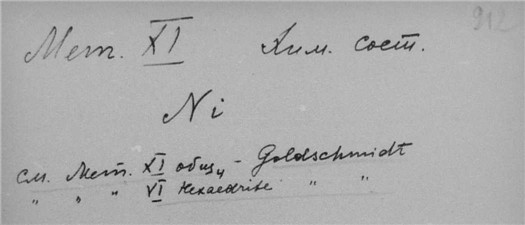 912
Мет. XI Хим. сост.
Ni
см. Мет. XI общ - Goldschmidt
" " " VI Hexaedrite " "